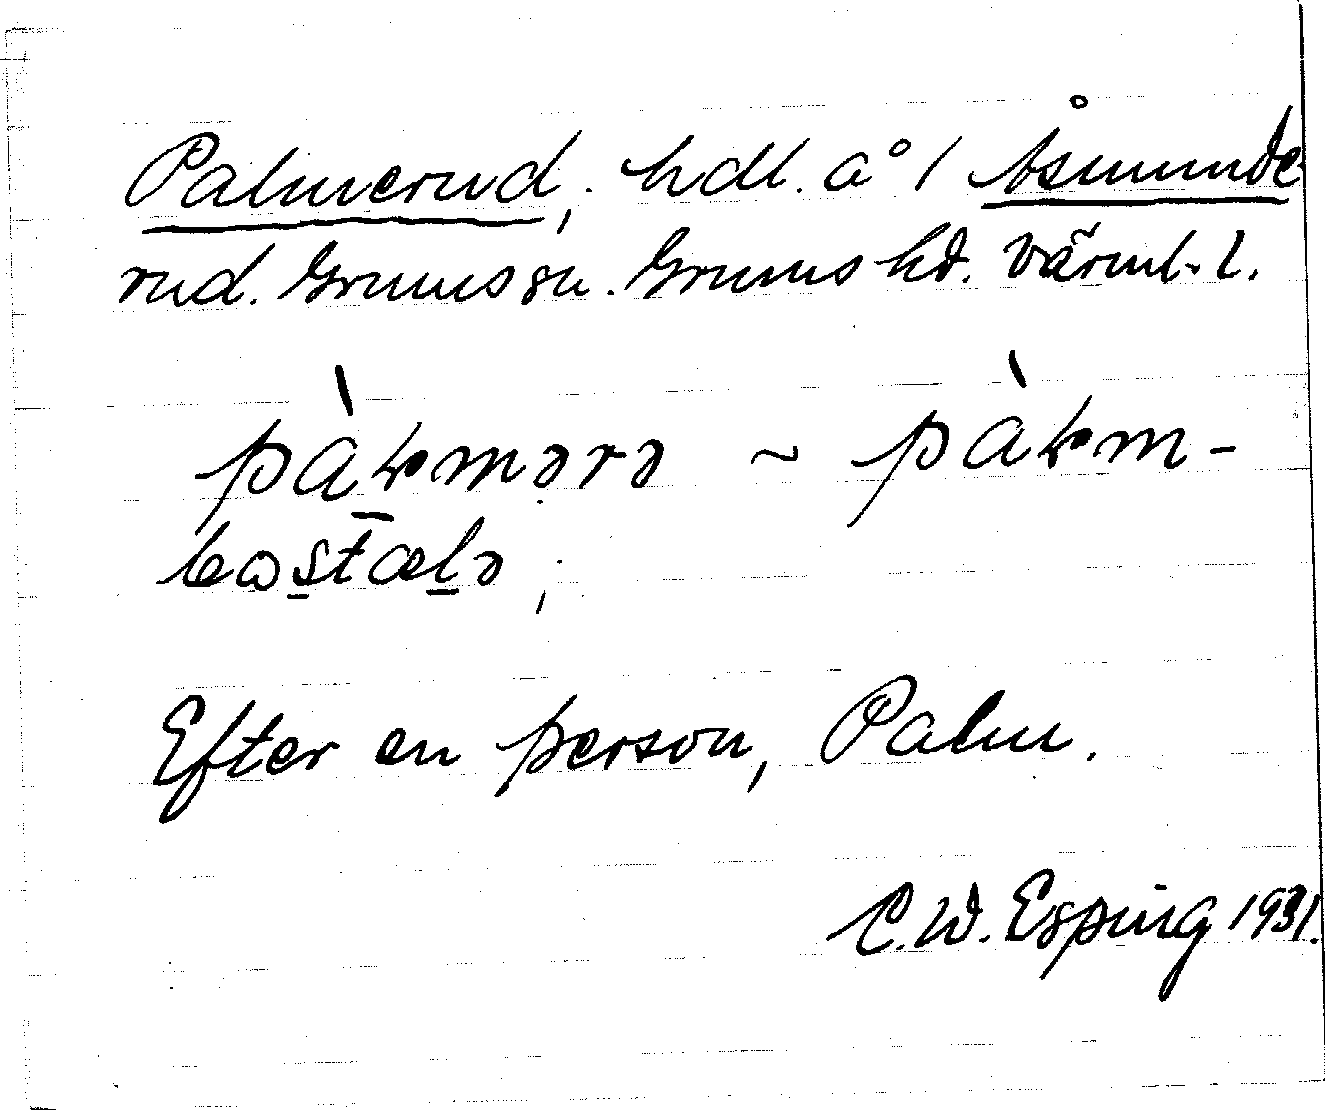 Palmerud, hdl. å 1 Åsmunde
rud. Grums sn. Grums hd. Värml. l.
pàɫmərə ~ pàɫm-
bωstælə,
Efter en person, Palm.
C.W. Esping 1931.